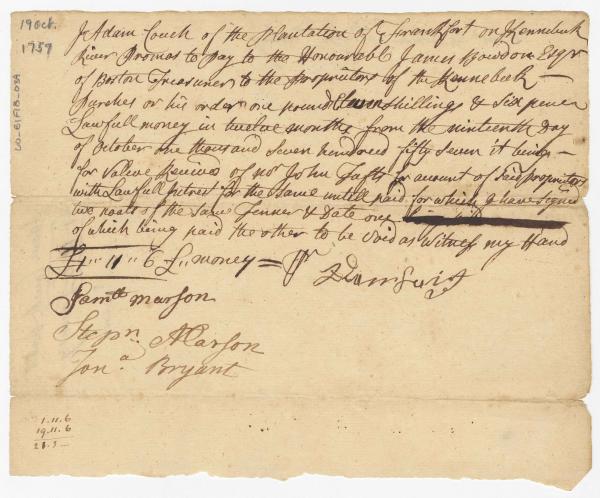 19 Oct.
1759
LO-61F18-03A
I Adam Couch of the Plantation of Frankfort on Kennebeck
River Promas to Pay to the Honourabl James Bowdon Esqr
of Boston Treasurer to the Proprietors of the Kennebeck
Purches or his order one pound Eleven Shillings & Six pence
Lawfull money in twelve months from the ninteenth Day
of October one thousand Seven hundred fifty Seven it being
for Valeue Received of mr John Tafts on account of Said Proprietors
with Lawfull Intrest for the Same untell paid for which I have Signed
two noats of the Same Tenner & Date one
of which being paid the other to be Void as Witness my Hand
£1 " 11 " 6 L" money =
Samll marson
Stepn. Marson
Jona. Bryant
1.11.6
19.11.6
21.3 —